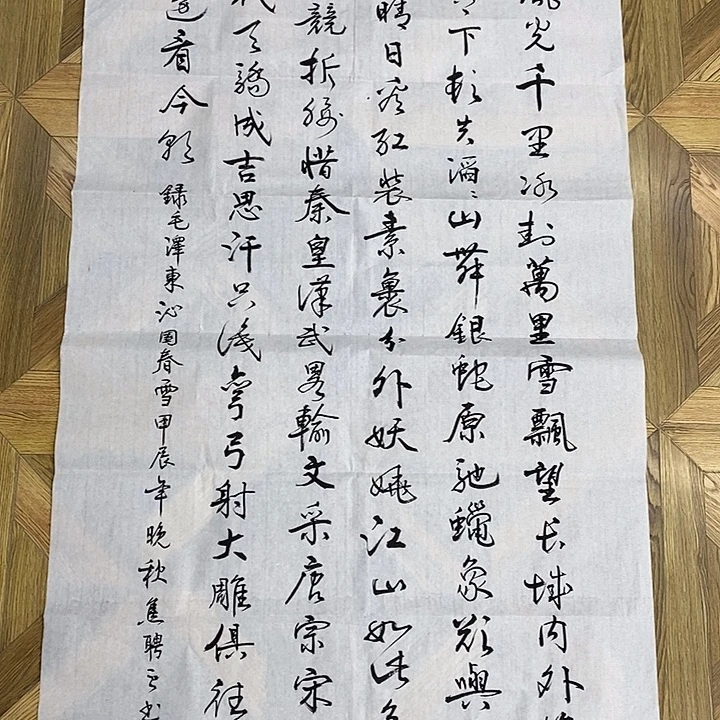 風光千里冰封萬里雪飄望长城内外
下頓失滔滔山舞銀蛇原馳蠟象欲與
晴日看紅裝素裹分外妖嬈江山如此多
競折腰惜秦皇漢武畧輸文采唐宗宋
代天驕成吉思汗只識彎弓射大雕俱往
還看今朝
録毛澤東沁园春雪甲辰年晚秋焦聘之书